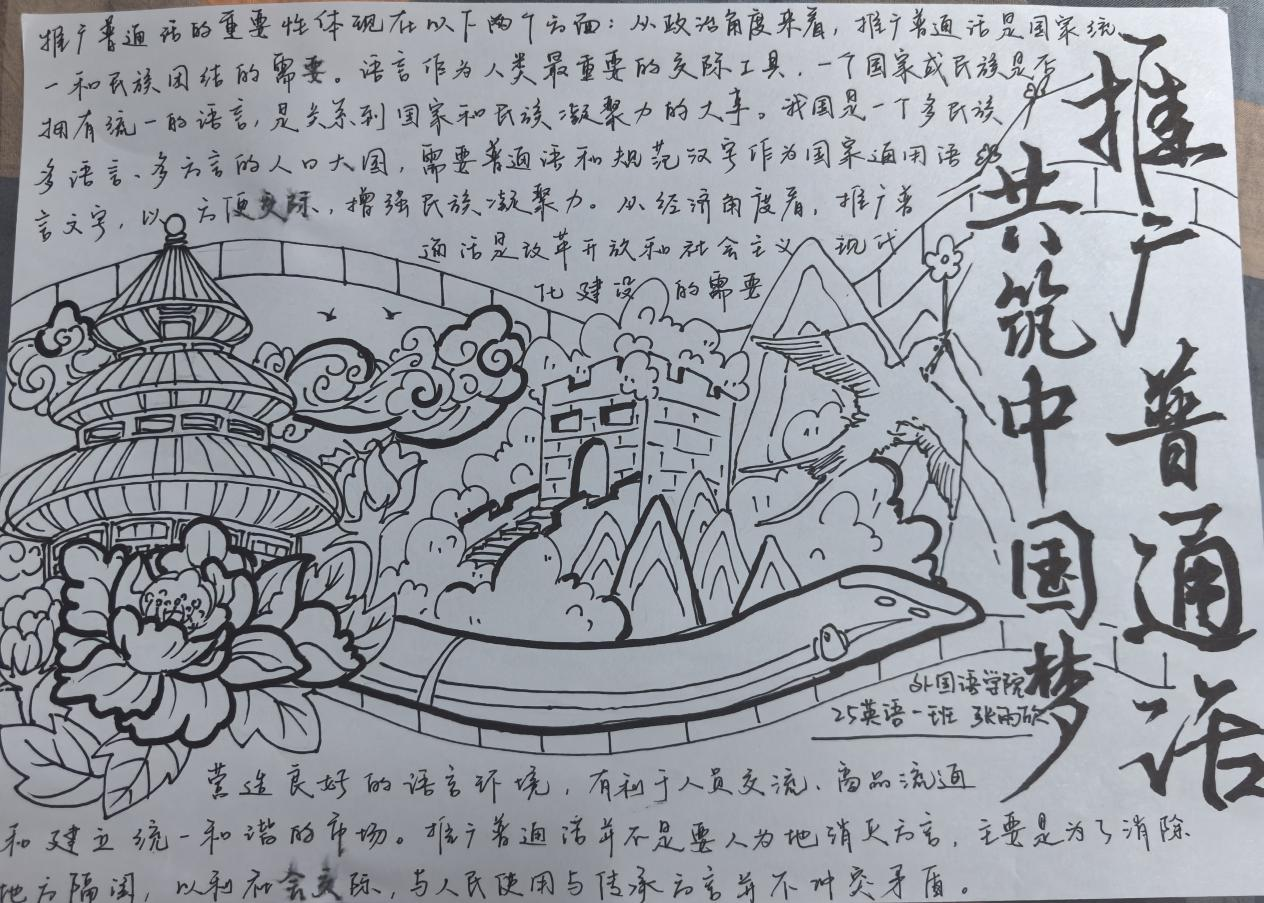 推广普通话
共筑中国梦
推广普通话的重要性体现在以下两个方面：从政治角度来看，推广普通话是国家统
一和民族团结的需要。语言作为人类最重要的交际工具，一个国家或民族是否
拥有统一的语言，是关系到国家和民族凝聚力的大事。我国是一个多民族
多语言、多方言的人口大国，需要普通话和规范汉字作为国家通用语
言文字，以方便交际，增强民族凝聚力。从经济角度看，推广普
通话是改革开放和社会主义现代
化建设的需要
外国语学院
25英语一班 张雨欣
营造良好的语言环境，有利于人员交流、商品流通
和建立统一和谐的市场。推广普通话并不是要人为地消灭方言，主要是为了消除
地方隔阂，以利社会交际，与人民使用与传承方言并不冲突矛盾。